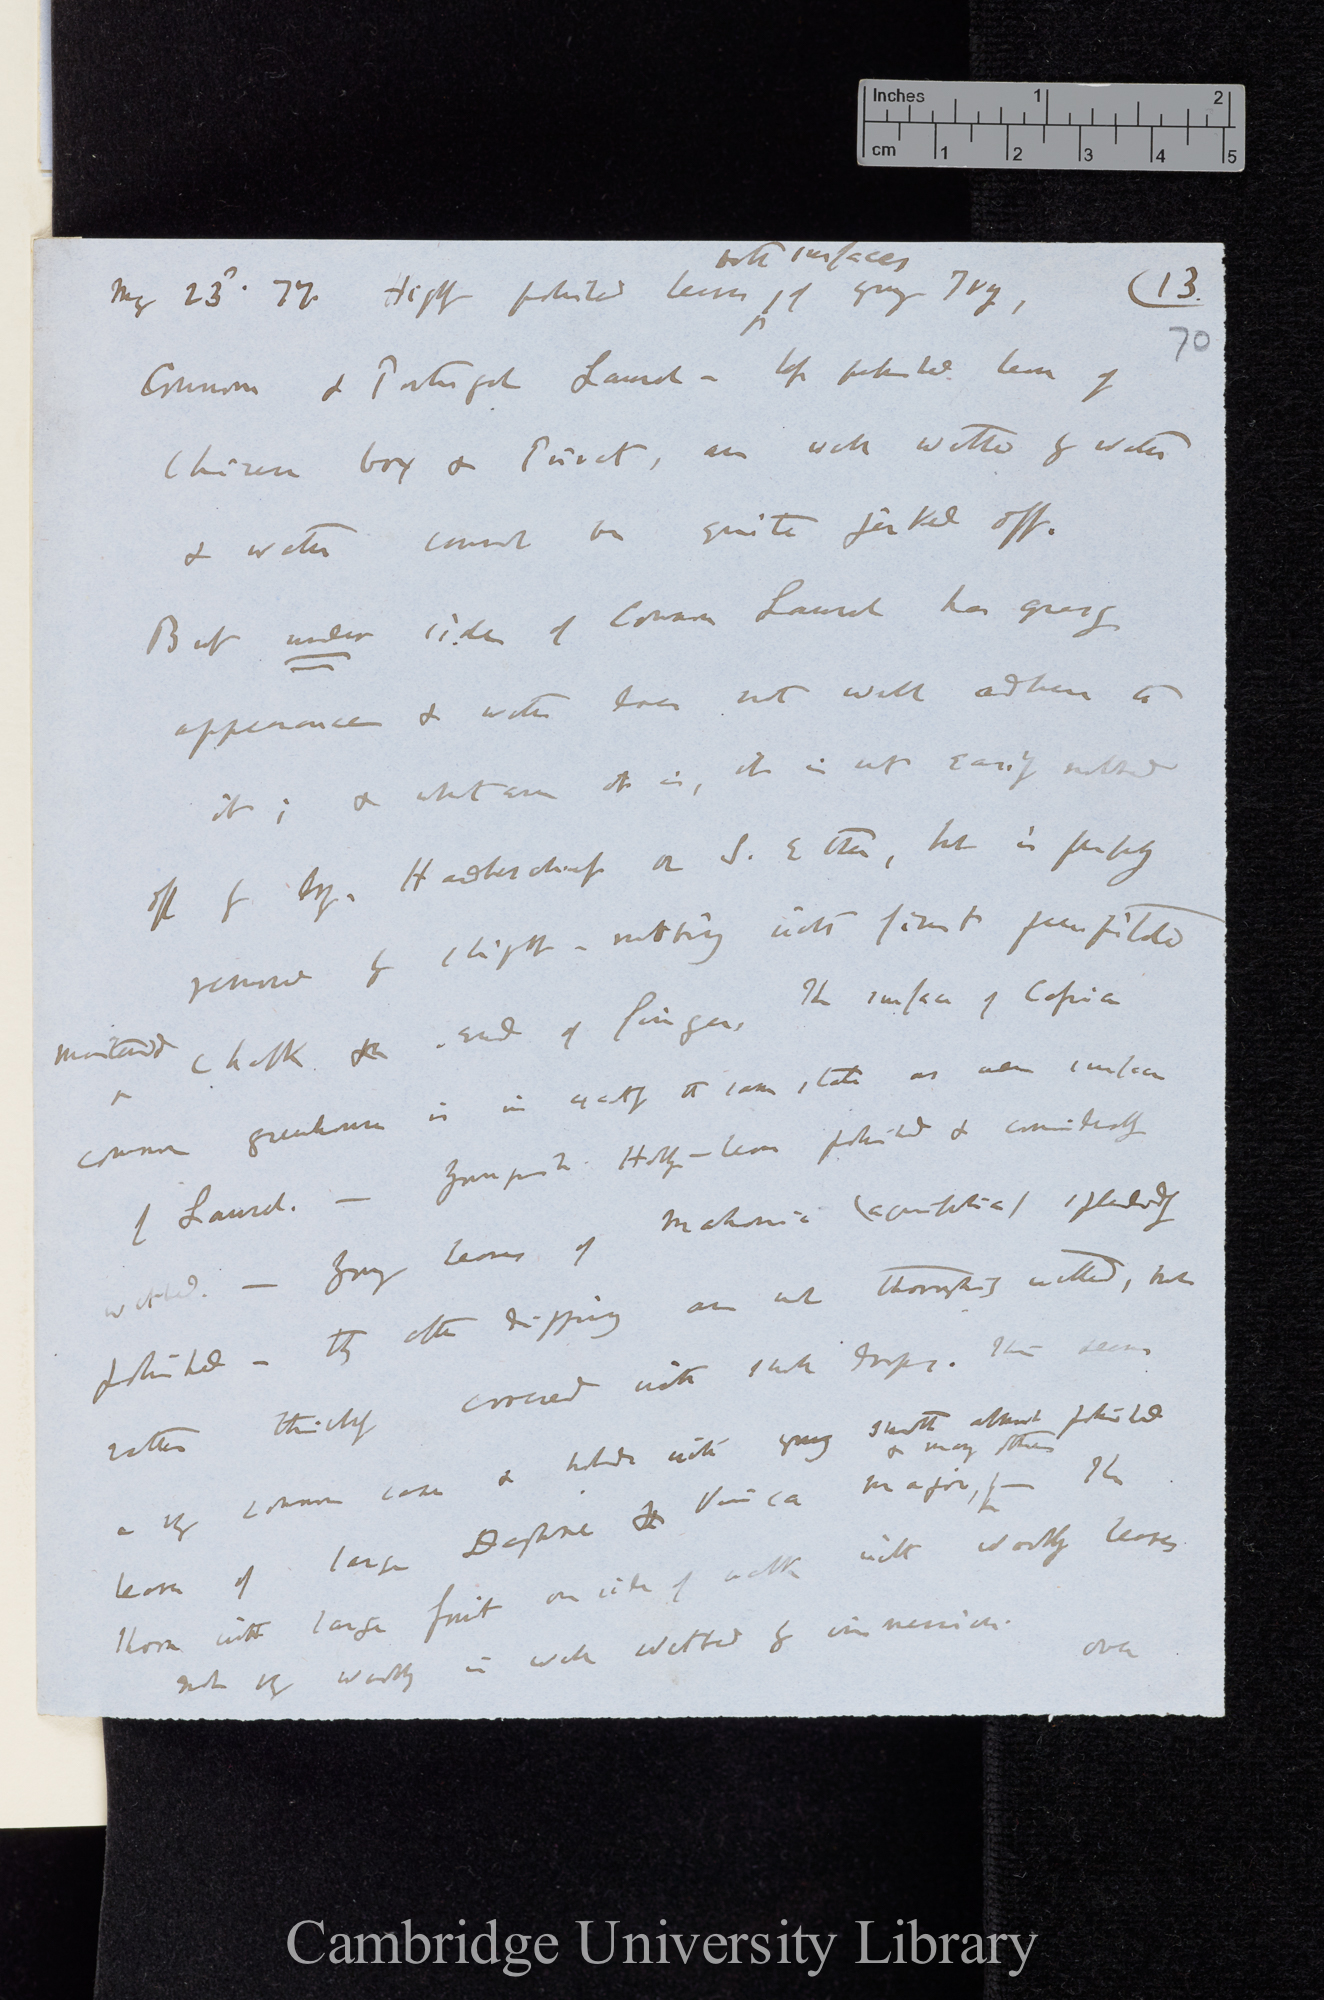 Inches 1 2
cm 1 2 3 4 5
both surfaces
May 23d. 77. Highly polished leaves, of young Ivy, (13.
70
Common & Portugal Laurel – top polished leaves of
Chinese box & Privet, are well wetted by water
& water cannot be quite jerked off.
But under sides of Common Laurel has greasy
appearance & water does not well adhere to
it; & whatever it is, it is not easily rubbed
off by dry. Handkerchief or S. Ether, but is
removed by slight-rubbing with finest precipitated
moistened chalk & end of finger. The surface of
common greenhouse is in exactly the same state as under surface
of Laurel. — Holly-leaves polished & considerably
wetted. — Young leaves of Mahonia (aquifolia) splendidly
polished – they after dipping are not thoroughly wetted, but
rather thickly covered with drops. This seems
a very common case & holds with young smooth almost polished
& many others
leaves of large Daphne & Vinca major, The
Thorn with large fruit on side of walk with woolly leaves
not very woolly is well wetted by immersion.
over
Cambridge University Library